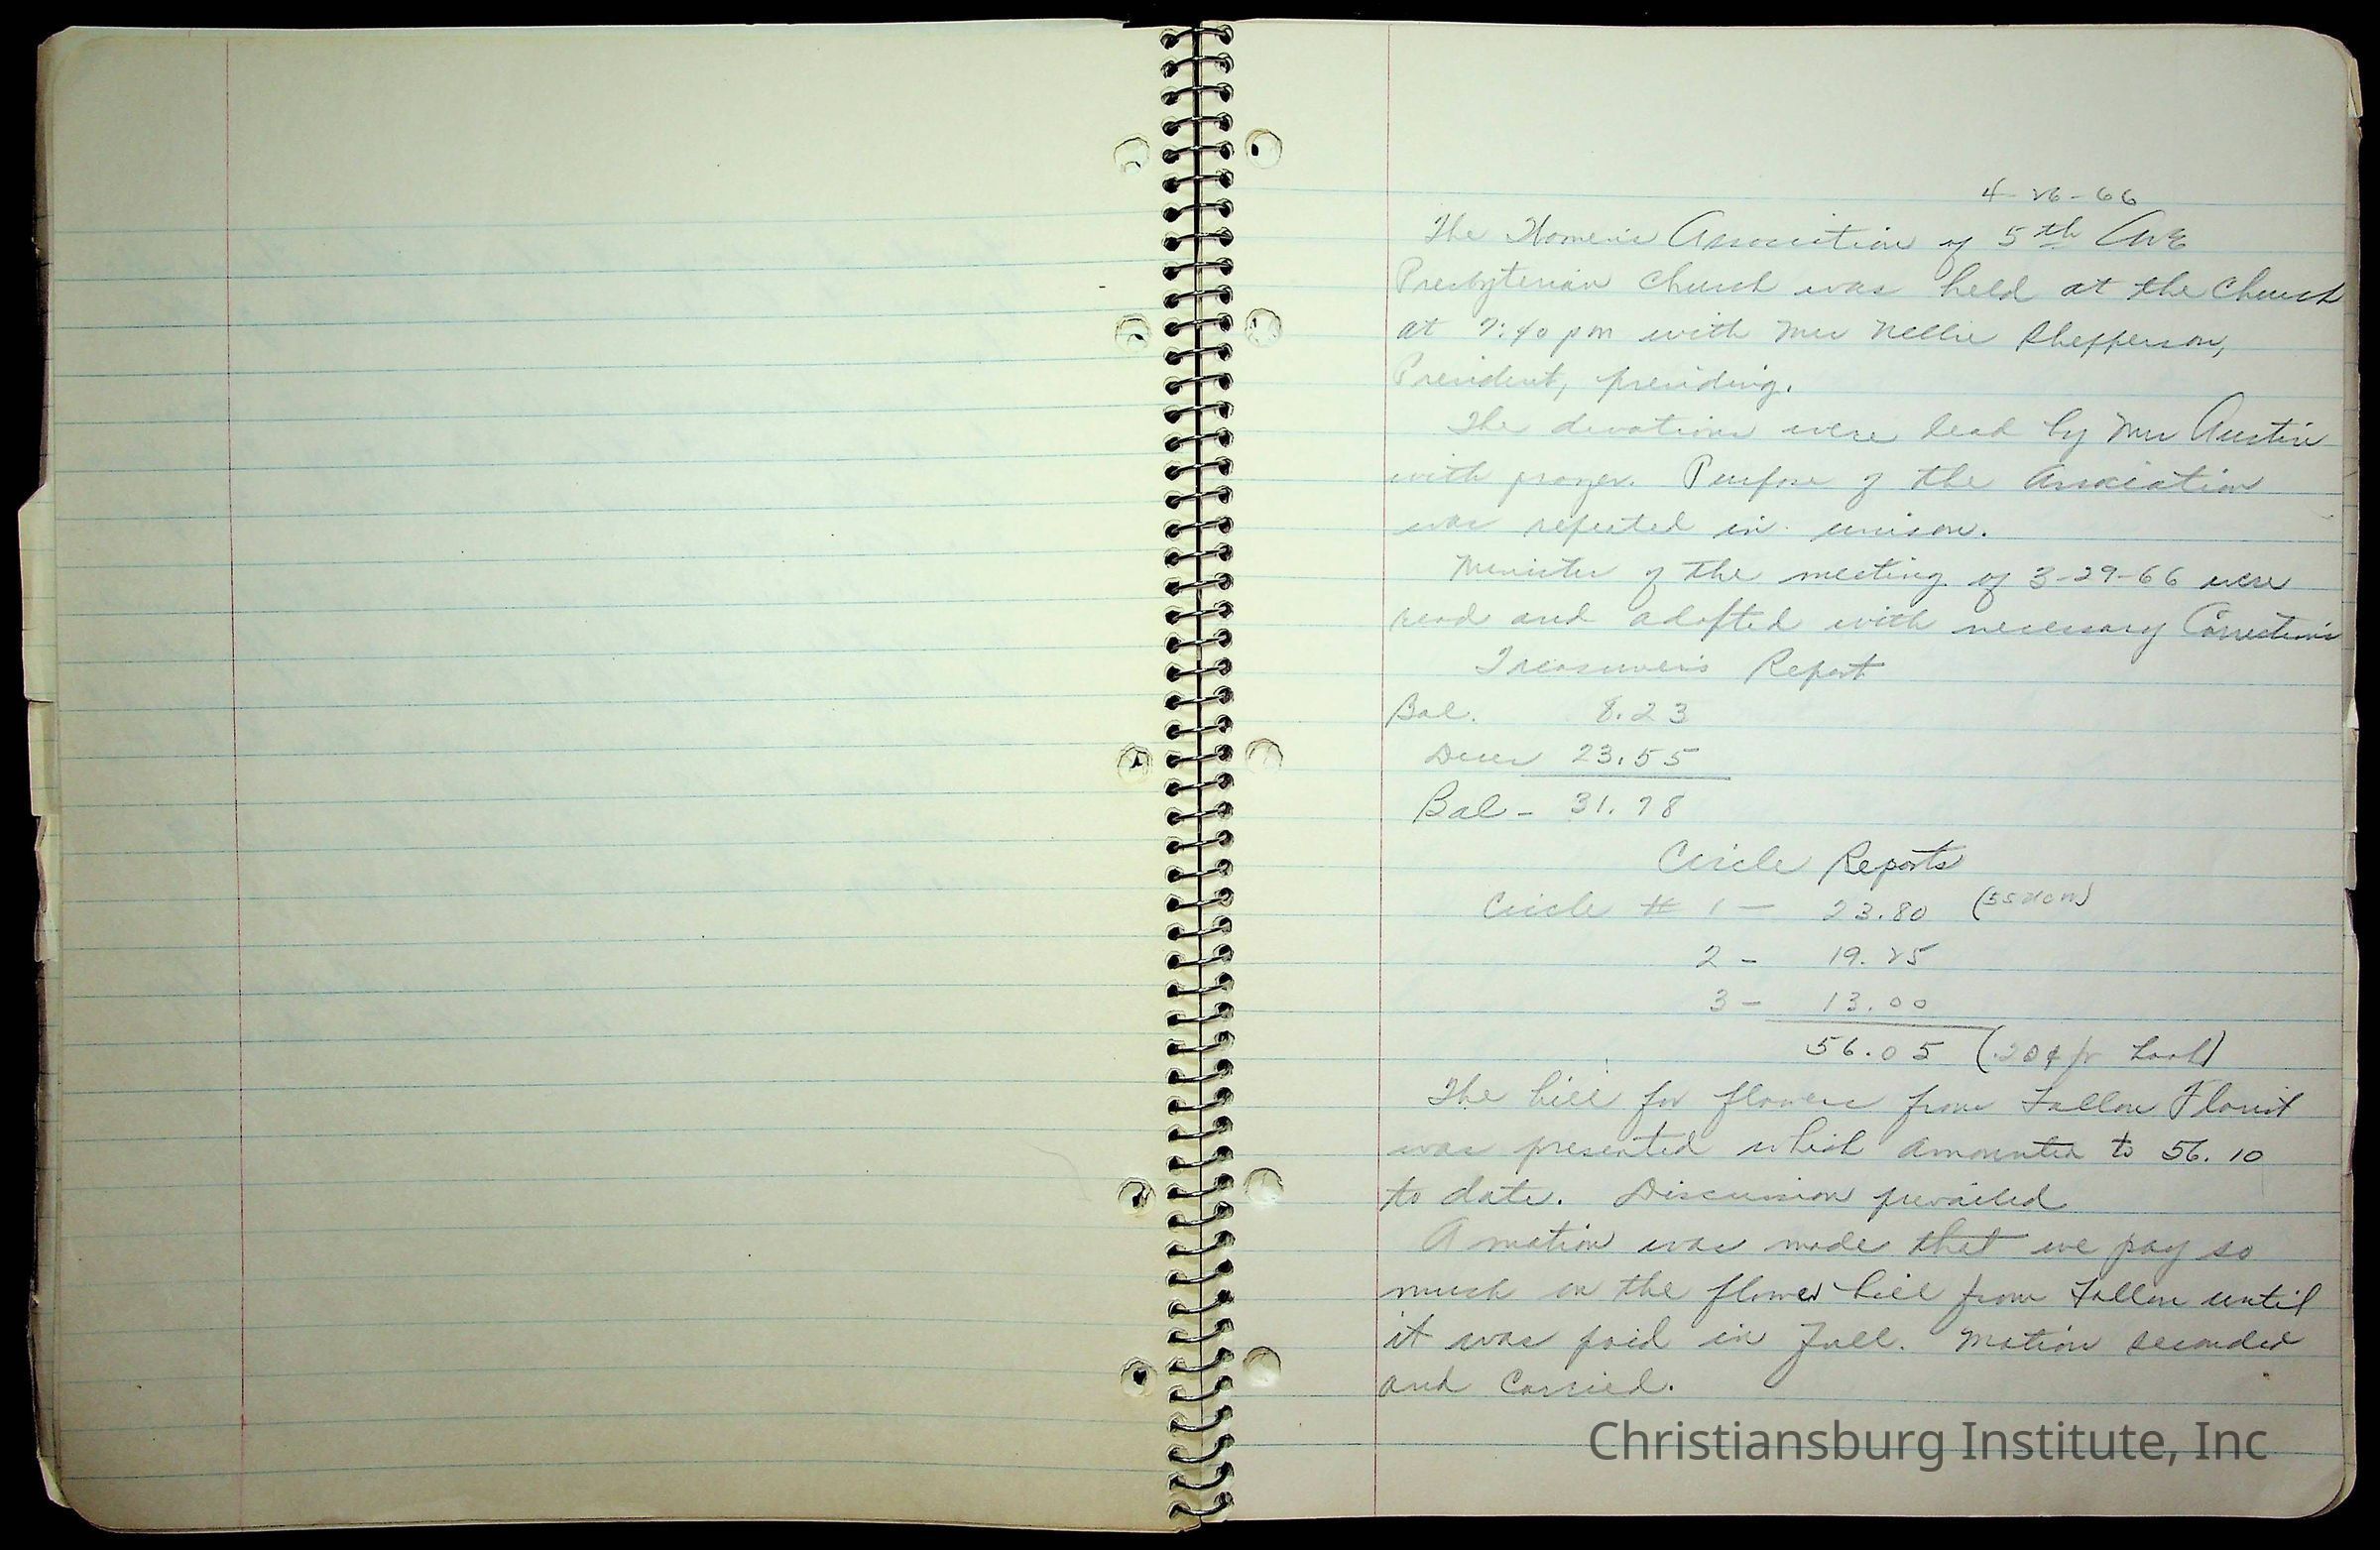 4-26-66
The Women's Association of 5th Ave
Presbyterian Church was held at the Church
at 7:40 pm with Mrs Nellie Shepperson,
President, presiding.
The devotions were lead by Mrs Austin
with prayer. Purpose of the Association
was repeated in unison.
Minutes of the meeting of 3-29-66 were
read and adopted with necessary Corrections
Treasurer's Report
Bal. 8.23
Dues 23.55
Bal - 31.78
Circle Reports
Circle # 1 - 23.80
2 - 19.25
3 - 13.00
56.05 (.20¢
The bill for flowers from Fallon Florist
was presented which amounted to 56.10
to date. Discussion prevailed
A motion was made that we pay so
much on the flower bill from Fallon until
it was paid in full. Motion seconded
and Carried.
Christiansburg Institute, Inc